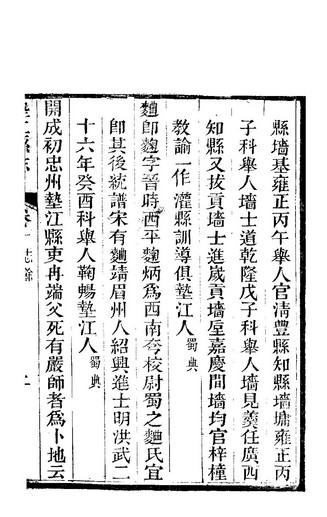 縣墻基雍正丙午舉人官淸豐縣知縣墻墉雍正丙
子科舉人墻士道乾隆戊子科舉人墻見羹任廣西
知縣又拔貢墻士進歲貢墻屋嘉慶間墻均官梓橦
教諭一作灌縣訓導俱墊江人蜀典
麯師麯字晉時西平麯炳爲西南夸校尉蜀之麯氏宜
師其後統譜宋有麯靖眉州人紹興進士明洪武二
十六年癸酉科舉人鞠暢墊江人蜀典
開成初忠州墊江縣吏冉端父死有嚴師者爲卜地云